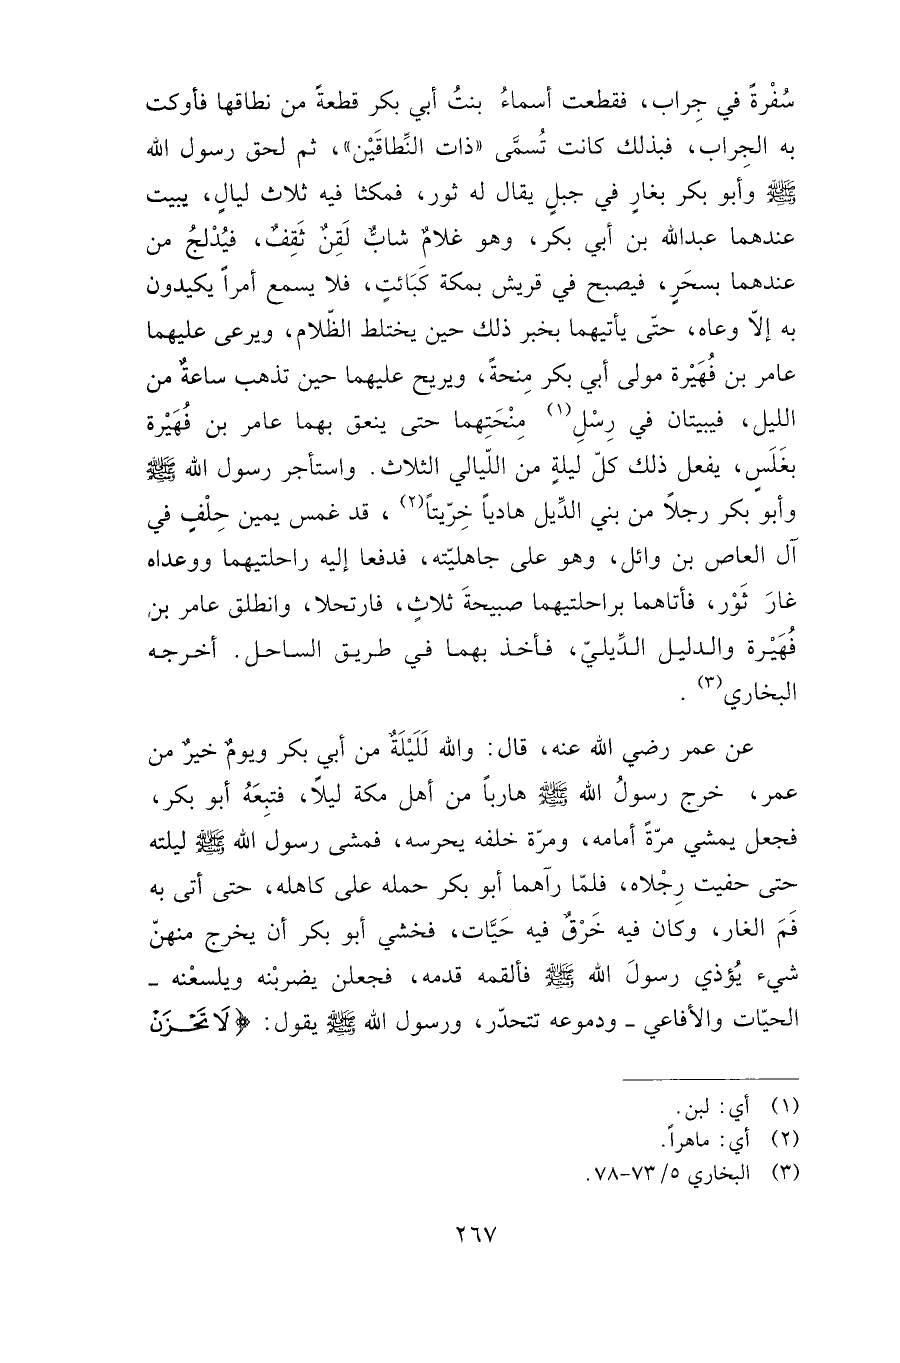 سُفْرةً في جِراب، فقطعت أسماءُ بنتُ أبي بكر قطعةً من نطاقها فأوكت
به الجِراب، فبذلك كانت تُسمَّى «ذات النِّطاقَيْن»، ثم لحق رسول الله
ﷺ وأبو بكر بغارٍ في جبلٍ يقال له ثور، فمكثا فيه ثلاث ليالٍ، يبيت
عندهما عبدالله بن أبي بكر، وهو غلامٌ شابٌّ لَقِنٌ ثَقِفٌ، فيُدْلجُ من
عندهما بسحَرٍ، فيصبح في قريش بمكة كَبَائتٍ، فلا يسمع أمراً يكيدون
به إلّا وعاه، حتّى يأتيهما بخبر ذلك حين يختلط الظّلام، ويرعى عليهما
عامر بن فُهَيْرة مولى أبي بكر مِنحةً، ويريح عليهما حين تذهب ساعةٌ من
الليل، فيبيتان في رِسْلِ(١) مِنْحَتِهما حتى ينعق بهما عامر بن فُهَيْرة
بغَلَسٍ، يفعل ذلك كلّ ليلةٍ من اللّيالي الثلاث. واستأجر رسول الله ﷺ
وأبو بكر رجلاً من بني الدِّيل هادياً خِرّيتاً(٢)، قد غمس يمين حِلْفٍ في
آل العاص بن وائل، وهو على جاهليّته، فدفعا إليه راحلتيهما ووعداه
غارَ ثَوْر، فأتاهما براحلتيهما صبيحةَ ثلاثٍ، فارتحلا، وانطلق عامر بن
فُهَيْرة والدليل الدِّيليّ، فأخذ بهما في طريق الساحل. أخرجه
البخاري(٣).
عن عمر رضي الله عنه، قال: والله لَلَيْلَةٌ من أبي بكر ويومٌ خيرٌ من
عمر، خرج رسولُ الله ﷺ هارباً من أهل مكة ليلًا، فتبِعَهُ أبو بكر،
فجعل يمشي مرّةً أمامه، ومرّة خلفه يحرسه، فمشى رسول الله ﷺ ليلته
حتى حفيت رِجْلاه، فلمّا رآهما أبو بكر حمله على كاهله، حتى أتى به
فَمَ الغار، وكان فيه خَرْقٌ فيه حَيَّات، فخشي أبو بكر أن يخرج منهنّ
شيء يُؤذي رسولَ الله ﷺ فألقمه قدمه، فجعلن يضربْنه ويلسعْنه ـ
الحيّات والأفاعي ـ ودموعه تتحدّر، ورسول الله ﷺ يقول: ﴿لَا تَحْزَنْ
(١) أي: لبن.
(٢) أي: ماهراً.
(٣) البخاري ٥/ ٧٣-٧٨.
٢٦٧